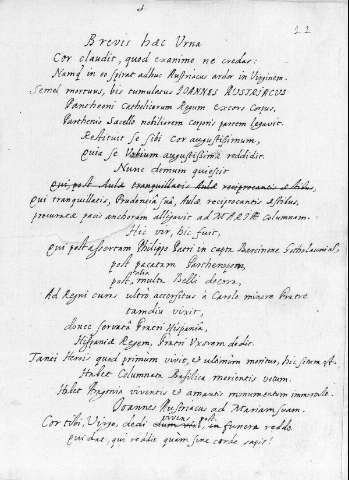 22
Brevis hæc Urna
Cor claudit, quod exanimo ne credas:
Namq in eo spirat adhuc Austriacus ardor in Virginem.
Semel mortuus, bis tumulatus IOANNES AUSTRIACUS
Pantheoni Catholicorum Regum excors corpus,
Parthenis Sacello nobiliorem corporis partem legavit.
Restituit se sibi Cor augustissimum,
quia se Virginum augustissimæ reddidit.
Nunc demum quiescit
qui post Aulæ tranquillatis Aulæ reciprocantis æstibus,
qui tranquillatis, Prudentiâ suâ, Aulæ reciprocantis æstibus,
procuratæ pacis anchoram alligavit ad MARIÆ Columnam.
Hic vir, hic fuit,
qui post assertam Philippo Patri in capta Barcinone
post pacatam Parthenopem,
post multa Belli decora,
Ad Regni curas ultro accersitus à Carolo minore Fratre
tamdiu vixit,
donec servatâ Fratri Hispaniâ,
Hispaniæ Regem, Fratri Uxorem dedit.
Tanti Herois quod primum vivit, et ultimum moritur, hic situm est.
Habet Columnata Basilica morientis votum.
Habet Aragonia viventis et amantis monumentum immortale.
Ioannes Austriacus ad Mariam suam.
vivens post
Cor tibi, Virgo, dedi in funera reddo
qui dat, qui reddit quam sine corde sapit!